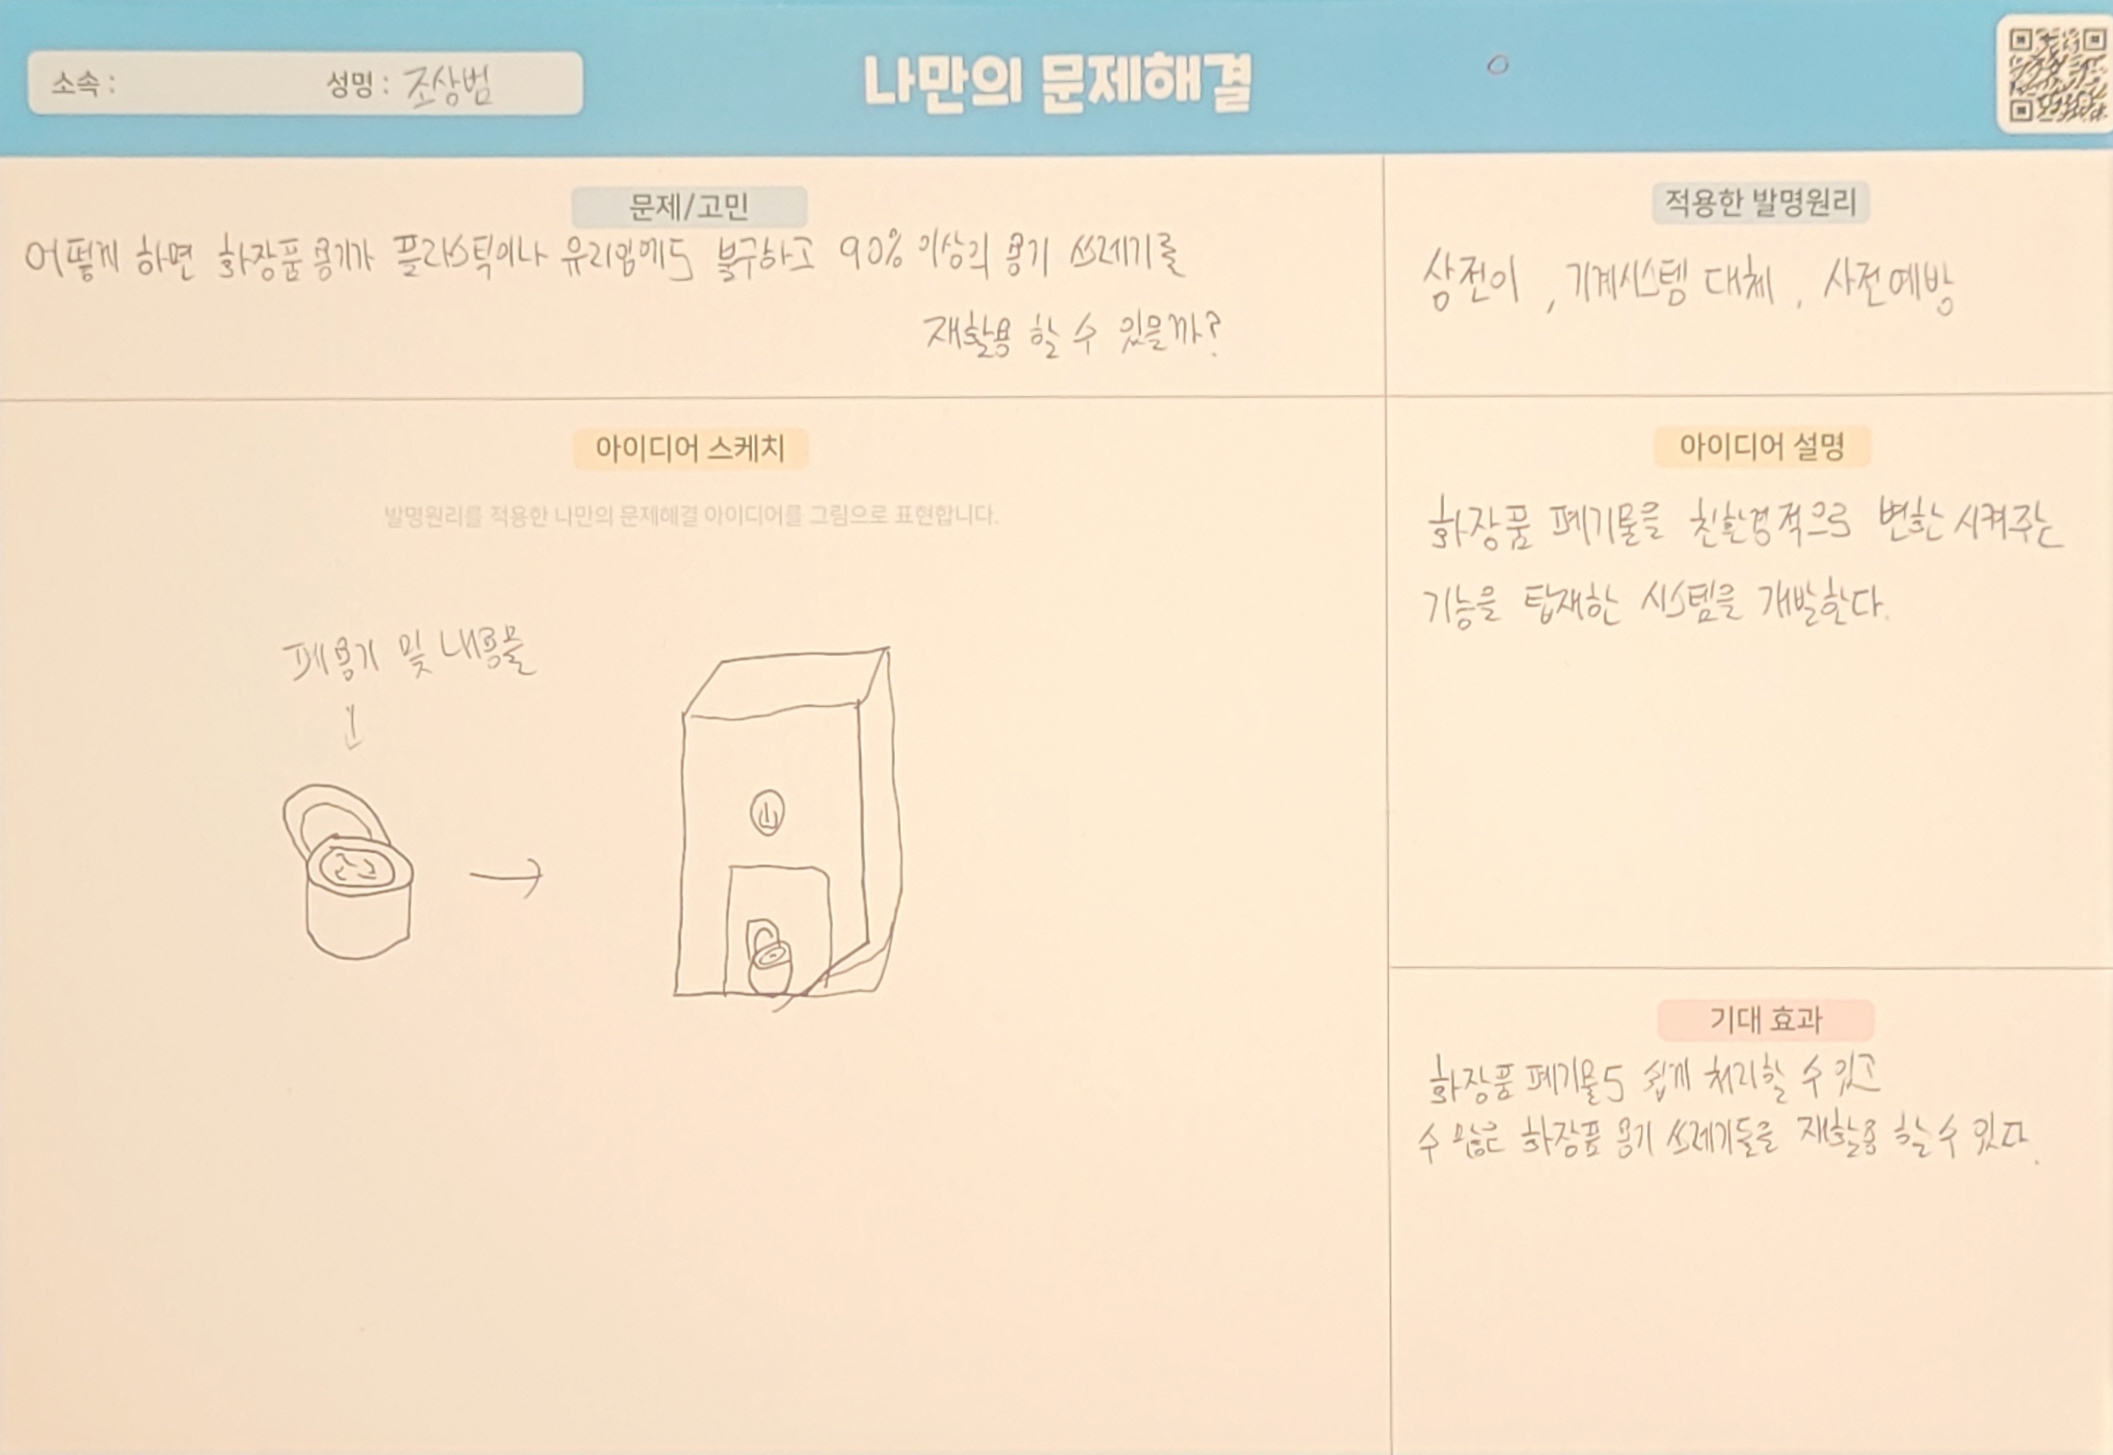 나만의 문제해결
소속 : 성명 : 조상범
문제/고민
어떻게 하면 화장품 용기가 플라스틱이나 유리임에도 불구하고 90% 이상의 용기 쓰레기를
재활용 할 수 있을까?
적용한 발명원리
상전이, 기계시스템 대체, 사전예방
아이디어 스케치
발명원리를 적용한 나만의 문제해결 아이디어를 그림으로 표현합니다.
폐용기 및 내용물
아이디어 설명
화장품 폐기물을 친환경적으로 변환시켜주는
기능을 탑재한 시스템을 개발한다.
기대 효과
화장품 폐기물도 쉽게 처리할 수 있고
수 많은 화장품 용기 쓰레기들을 재활용 할 수 있다.